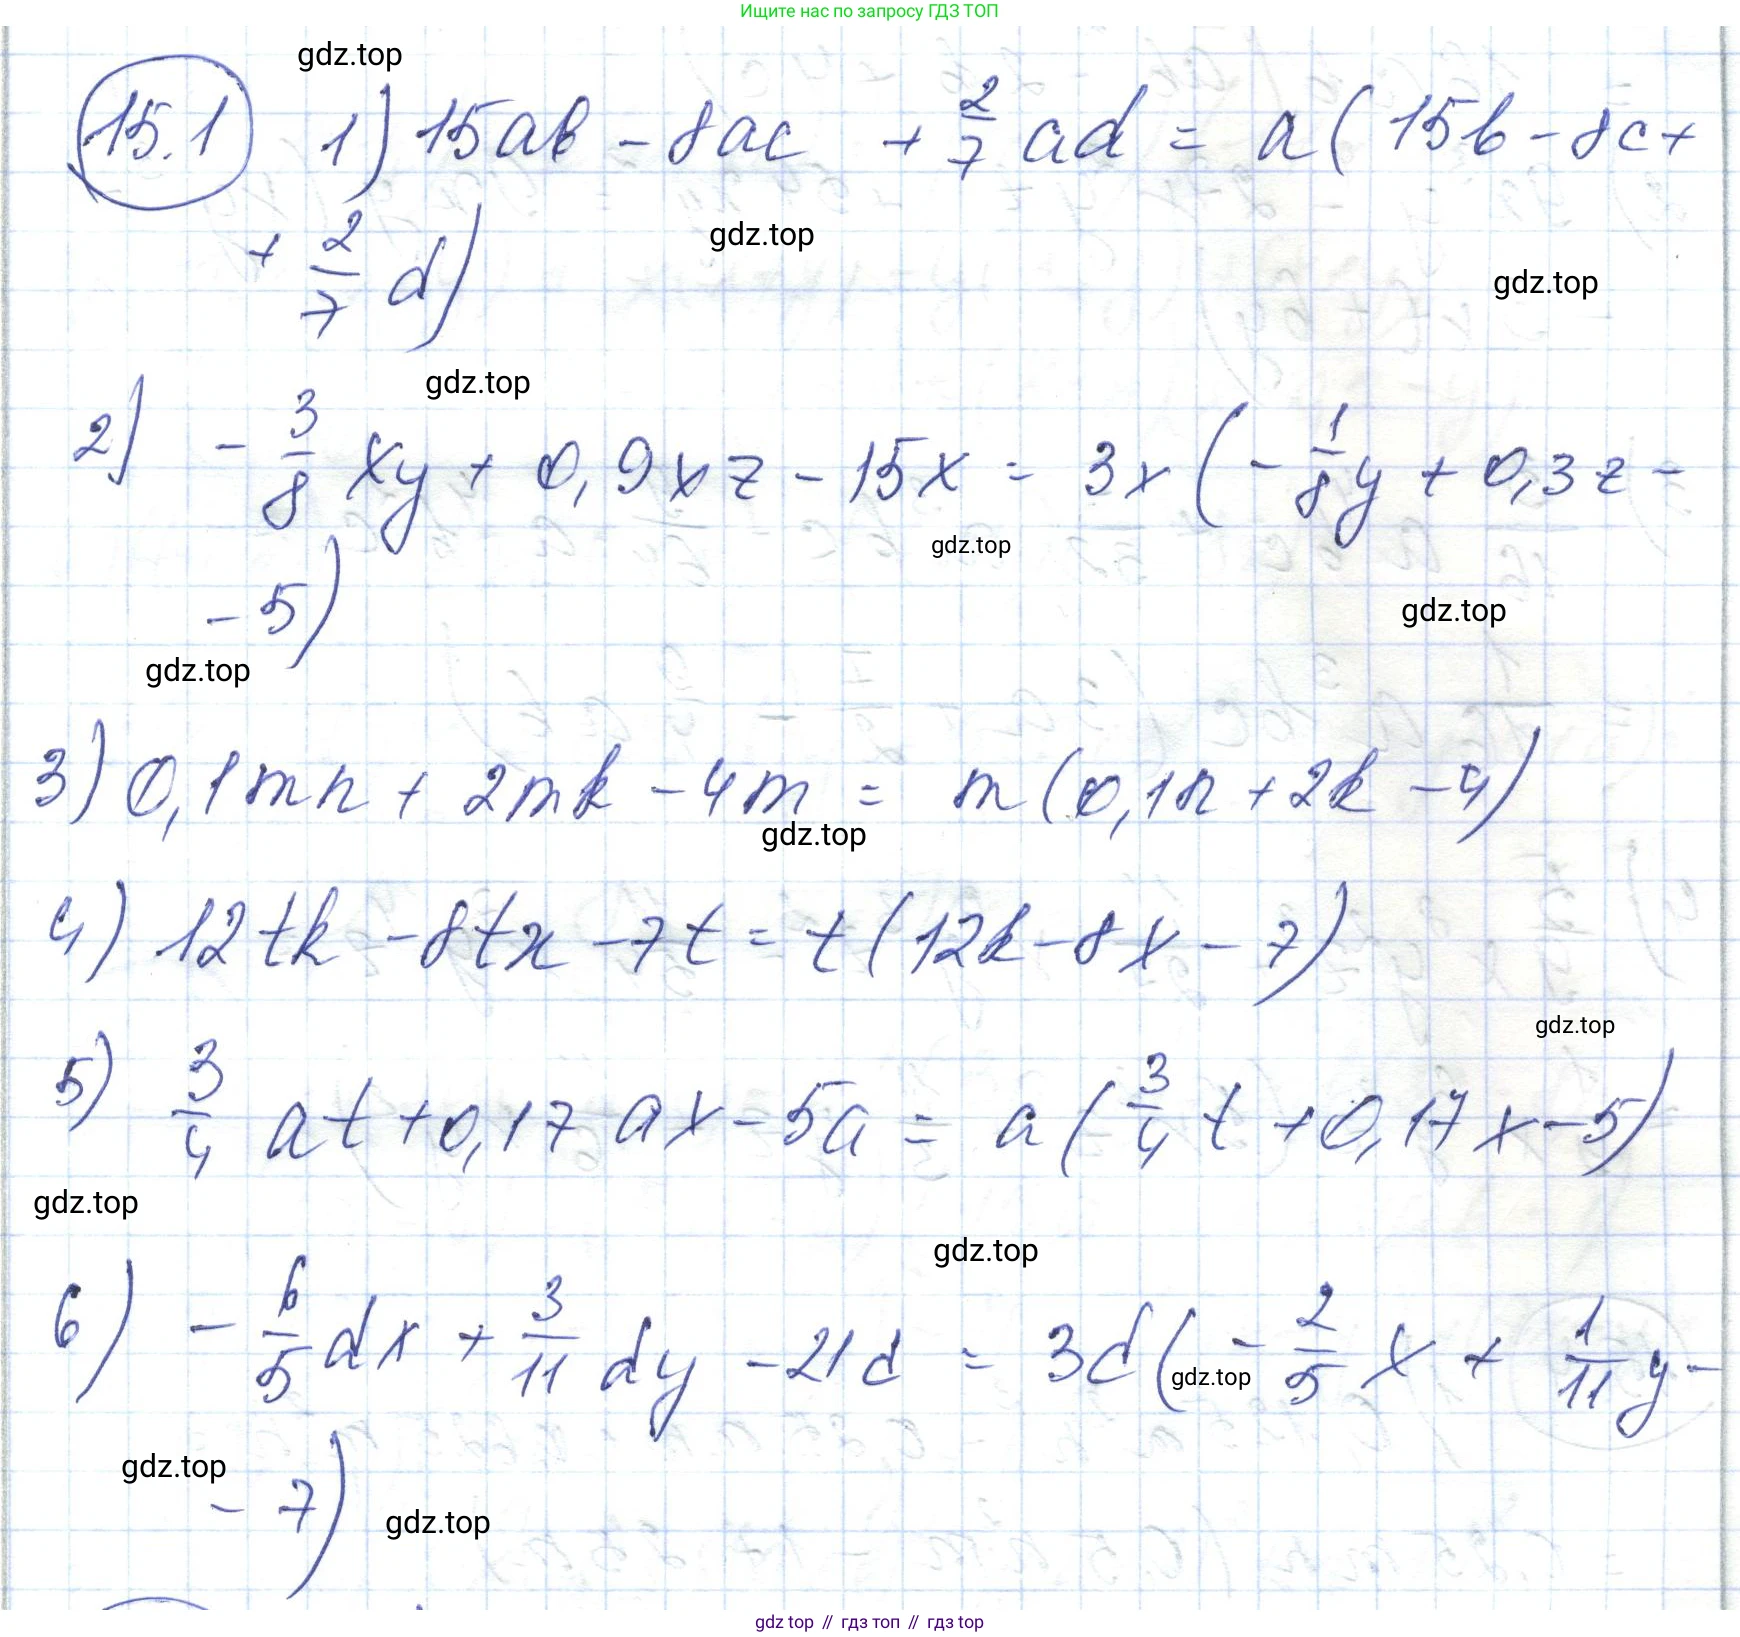 Ищите нас по запросу ГДЗ ТОП
gdz.top
15.1 1) 15ab - 8ac + 2/7 ad = a(15b - 8c +
+ 2/7 d)
gdz.top
gdz.top
gdz.top
2) - 3/8 xy + 0,9xz - 15x = 3x(- 1/8 y + 0,3z -
gdz.top
- 5)
gdz.top
gdz.top
3) 0,1mn + 2mk - 4m = m(0,1n + 2k - 4)
gdz.top
4) 12tk - 8tx - 7t = t(12k - 8x - 7)
gdz.top
5) 3/4 at + 0,17ax - 5a = a(3/4 t + 0,17x - 5)
gdz.top
gdz.top
6) - 6/5 dx + 3/11 dy - 21d = 3d(- 2/5 x + 1/11 y -
gdz.top
gdz.top
- 7)
gdz.top
gdz top // гдз топ // gdz top